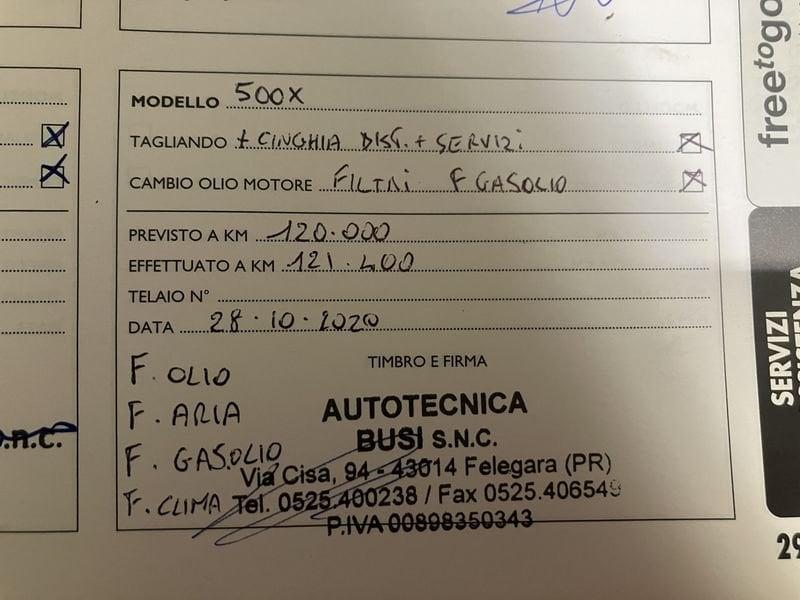 MODELLO 500X
TAGLIANDO + CINGHIA DISG. + SERVIZI
CAMBIO OLIO MOTORE FILTRI F GASOLIO
PREVISTO A KM 120.000
EFFETTUATO A KM 121.400
TELAIO N°
DATA 28.10.2020
TIMBRO E FIRMA
F. OLIO
F. ARIA
F. GASOLIO
F. CLIMA
AUTOTECNICA
BUSI S.N.C.
Via Cisa, 94 - 43014 Felegara (PR)
Tel. 0525.400238 / Fax 0525.406549
P.IVA 00898350343
.n.c.
free to go
SERVIZI
29